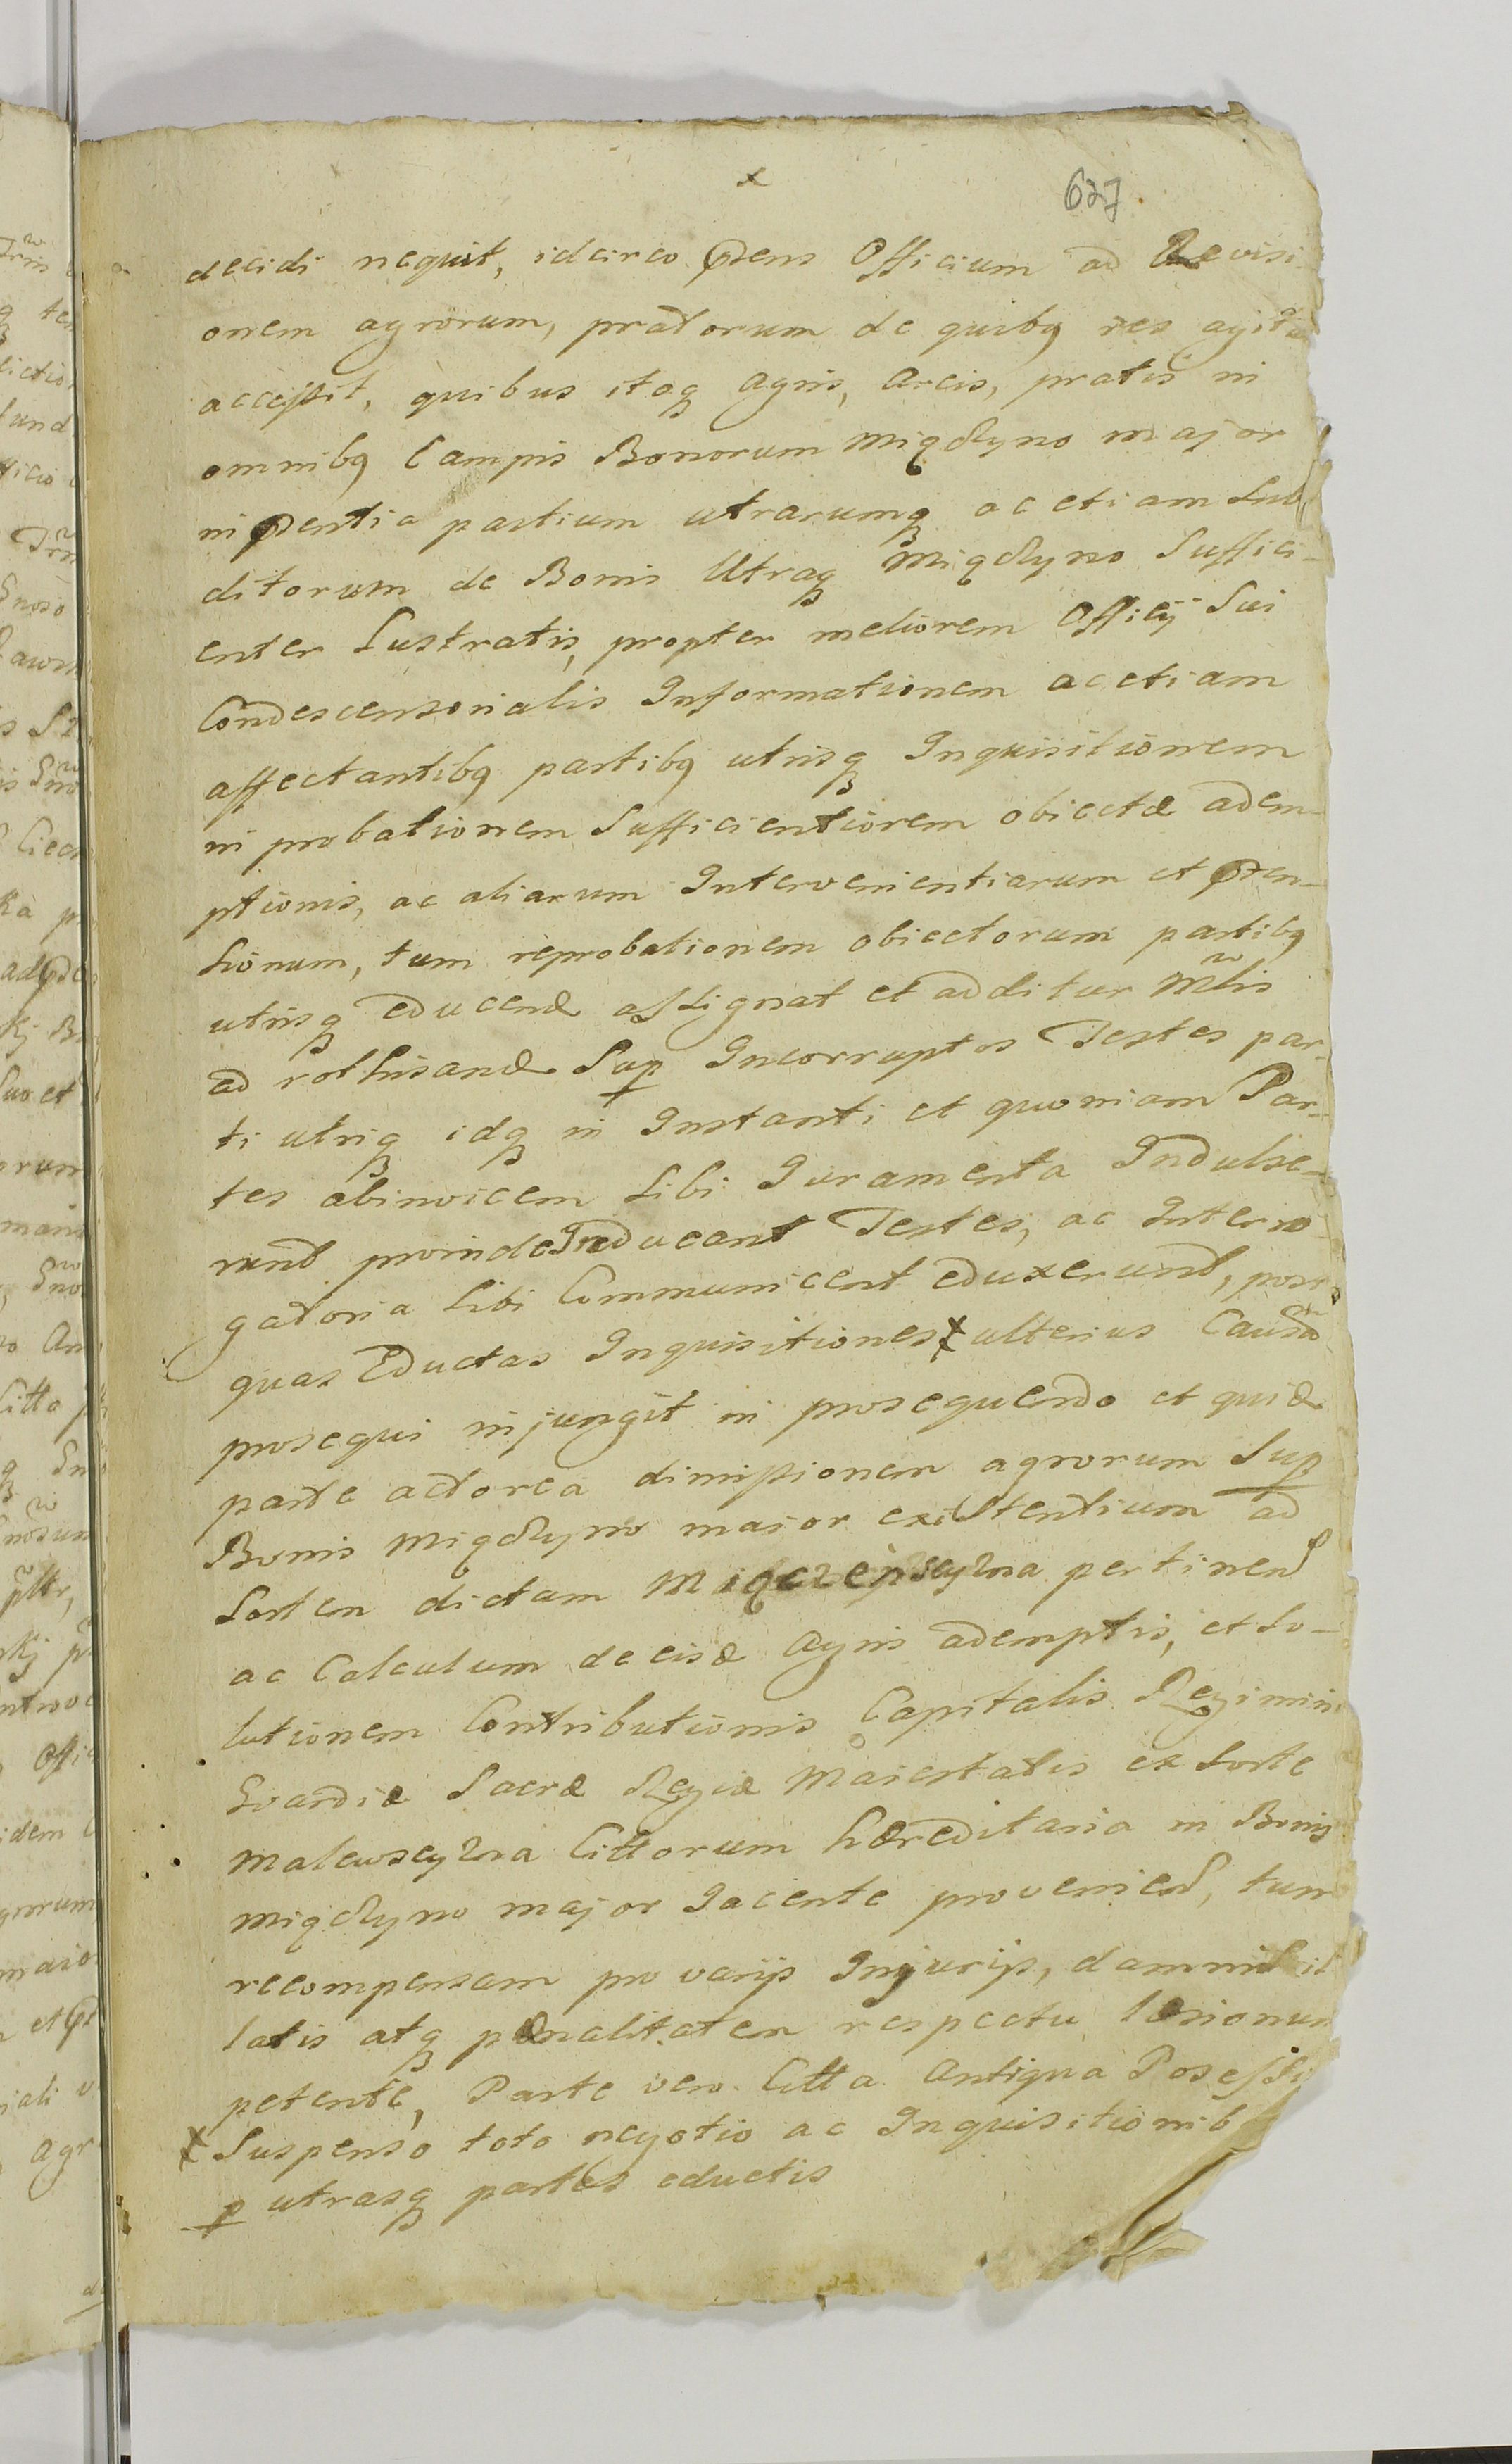 x
627.
decidi nequit, idcirco pdens Officium ad Revisi-
onem agrorum, pratorum de quibq res agitur
accessit, quibus itaq agris, areis, pratis in
omnibq Campis Bonorum Miqdlyno major
in pdentia partium utrarumq ac etiam Sub
ditorum de Bonis Utraq Miqdlyno Suffici-
enter Lustratis, propter meliorem Officij Sui
Condescensorialis Informationem ac etiam
affectantibq partibq utrisq Inquisitionem
in probationem Sufficientiorem obiectæ adem-
ptionis, ac aliarum Intervenientiarum et pdten-
sionum, tum reprobationem obiectorum partibq
utrisq educend assignat et additur Mlis
ad rothisand Sup Incorruptos Testes par-
ti utriq idq in Instanti et quoniam Par-
tes abinvicem Sibi Juramenta Indulse-
runt proinde Inducant Testes, ac Interro-
gatoria Sibi Communicent eduxerunt, post
quas Eductas Inquisitiones x ulterius Causã
prosequi injungit in prosequendo et quid
parte actorea dimissionem agrorum Sup
Bonis Miqdlyno major existentium ad
Sortem dictam Miqczepscyzna pertinend
ac Calculum de eisd Agris ademptis, et So-
lutionem Contributionis Capitalis Regimini
Gvardiæ Sacræ Regiæ Maiestatis ex Sorte
Malewscyzna Cittorum hæreditaria in Bonis
Miqdlyno major Jacente proveniend, tum
recompensam pro varijs Injurijs, damnis il
latis atq pænalitatem respectu læsionum
petente, Parte vero Citta Antiqua Posessi
x Suspenso toto negotio ac Inquisitionib
p utrasq partes eductis